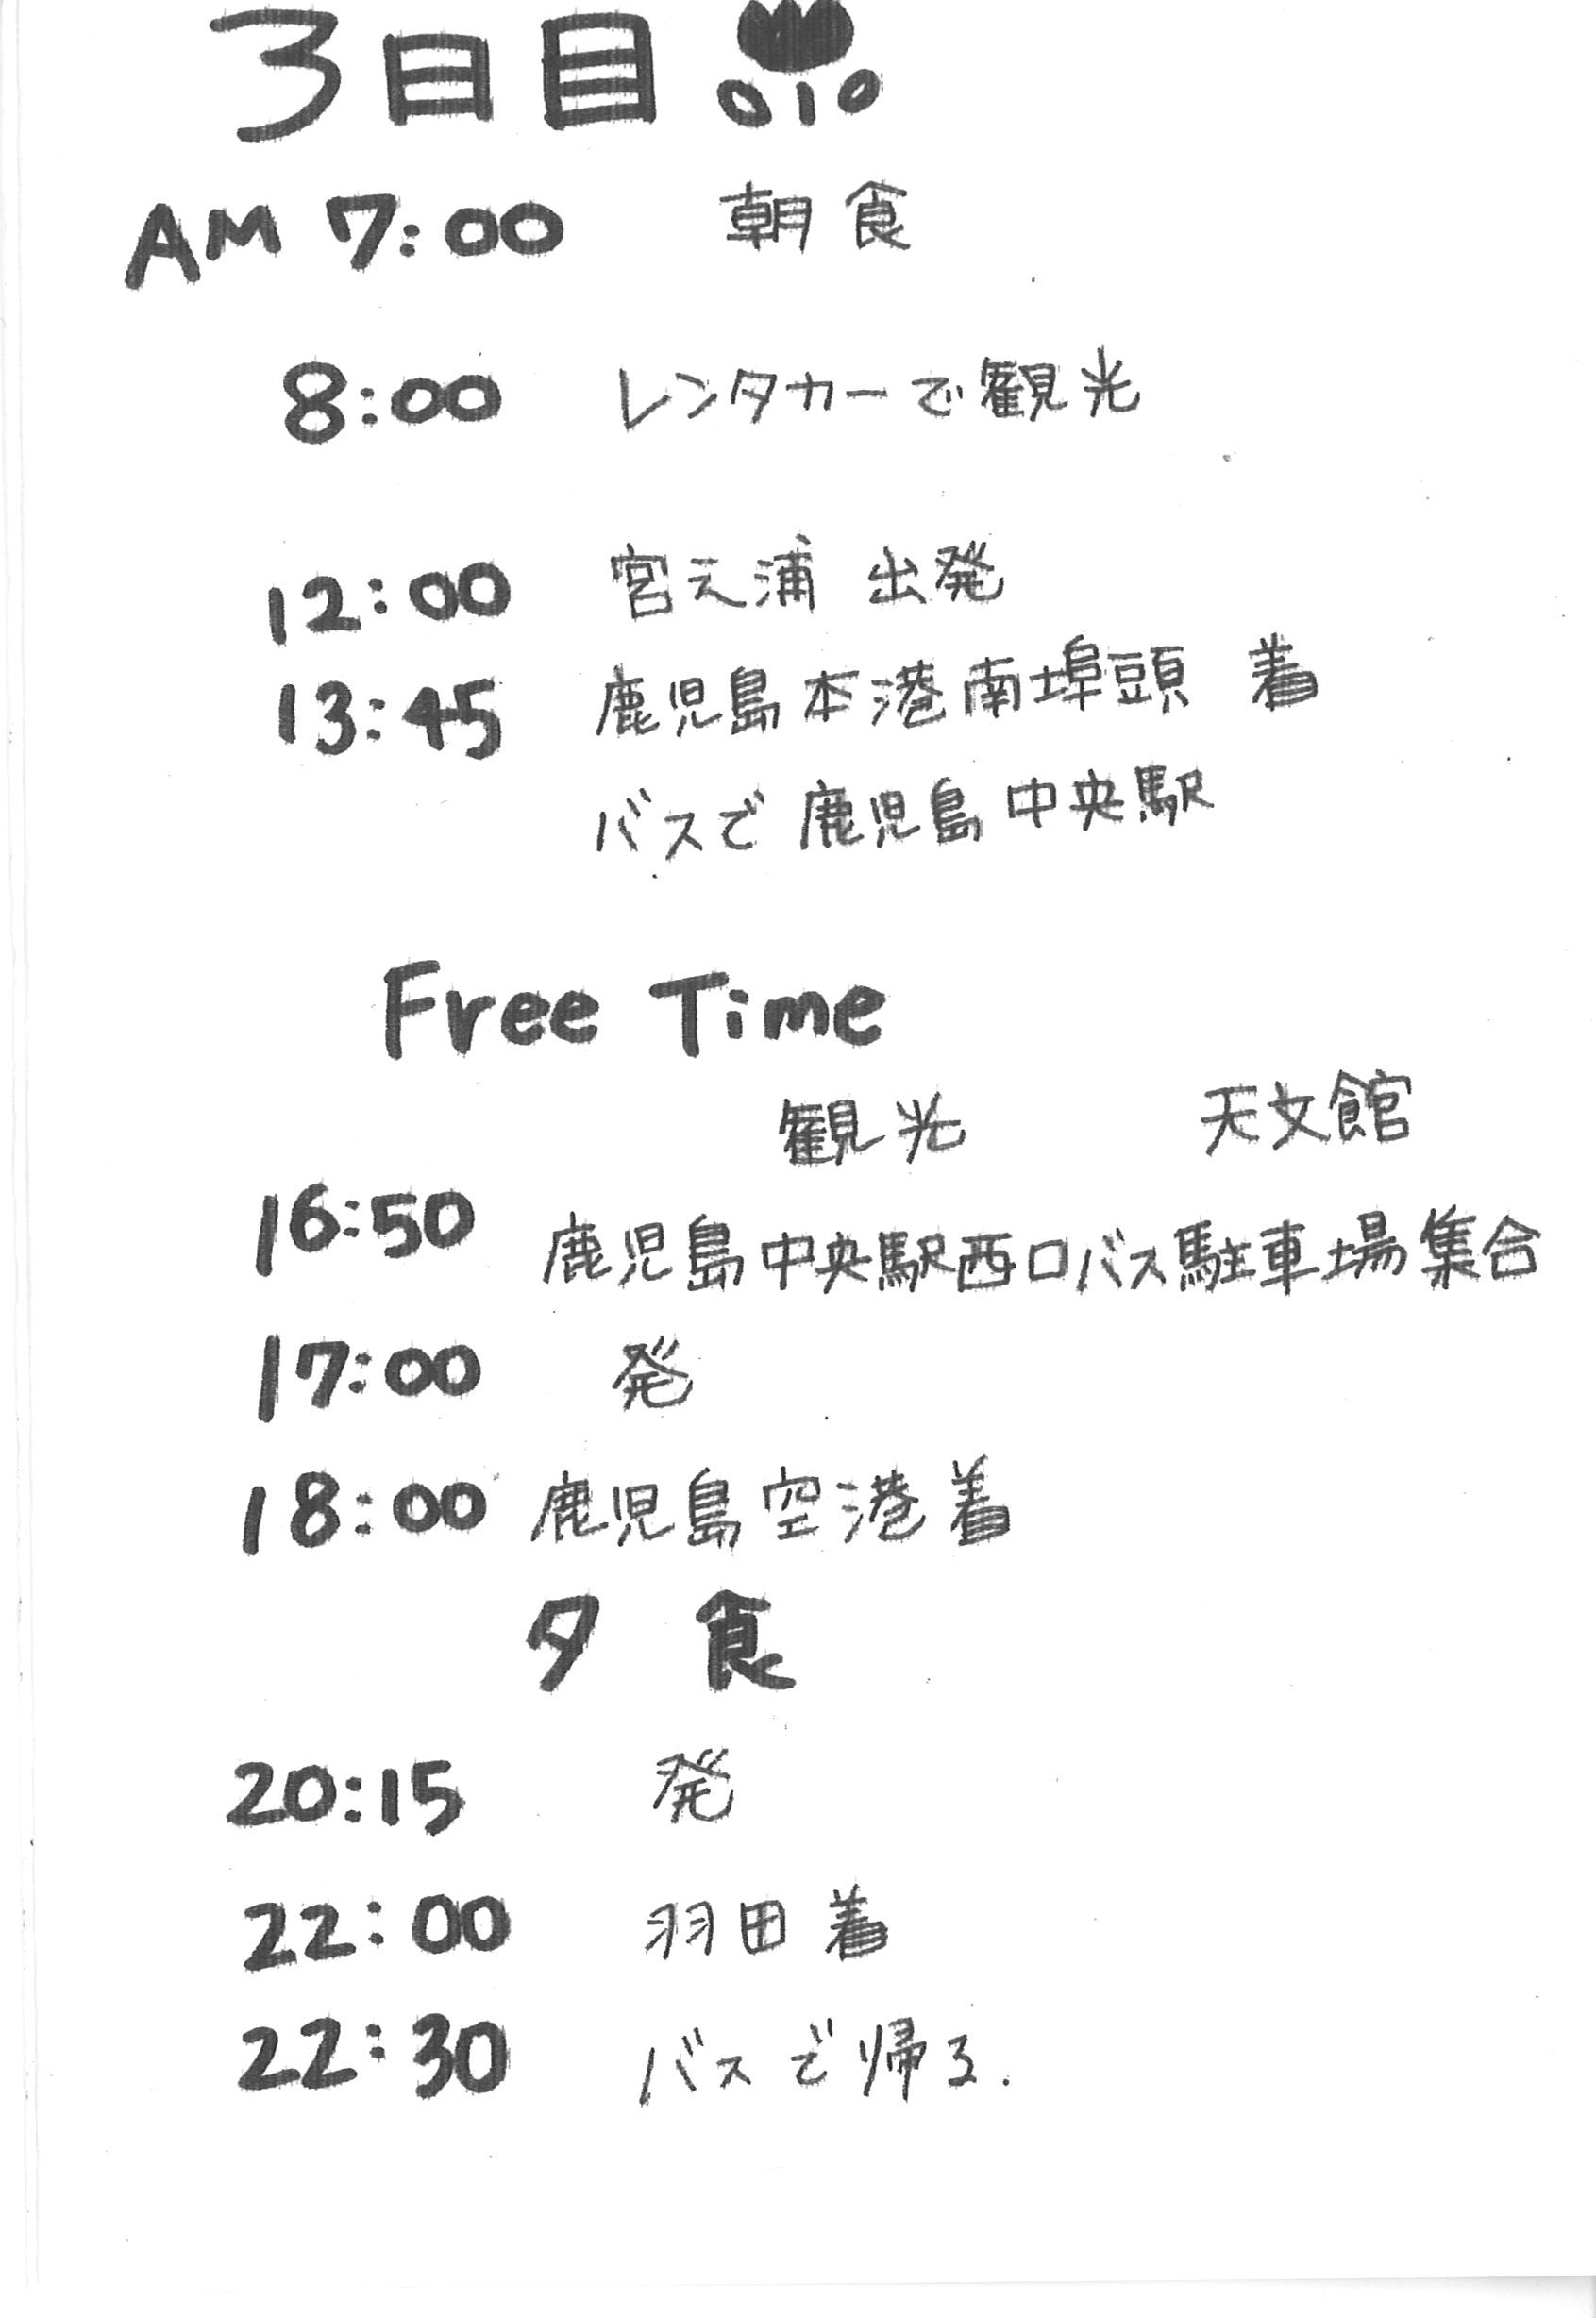 3日目
AM 7:00 朝食
8:00 レンタカーで観光
12:00 宮之浦 出発
13:45 鹿児島本港南埠頭 着
バスで 鹿児島中央駅
Free Time
観光 天文館
16:50 鹿児島中央駅西口バス駐車場集合
17:00 発
18:00 鹿児島空港着
夕食
20:15 発
22:00 羽田着
22:30 バスで帰る.